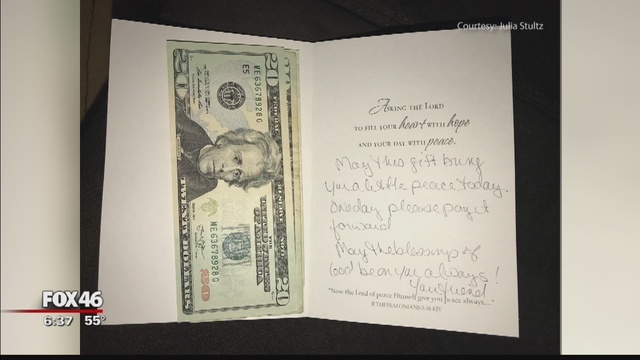 Courtesy: Julia Stultz
20
ME63678928G
E5
20
TWENTY DOLLARS
ME63678928G
20
20
ASKING THE LORD
TO FILL YOUR heart WITH hope
AND YOUR DAY WITH peace.
May this gift bring
you a little peace today.
One day please pay it
forward
May the blessings of
God be on you always!
Your friend
"Now the Lord of peace Himself give you peace always..."
II THESSALONIANS 3:16 KJV
FOX 46
6:37 55°